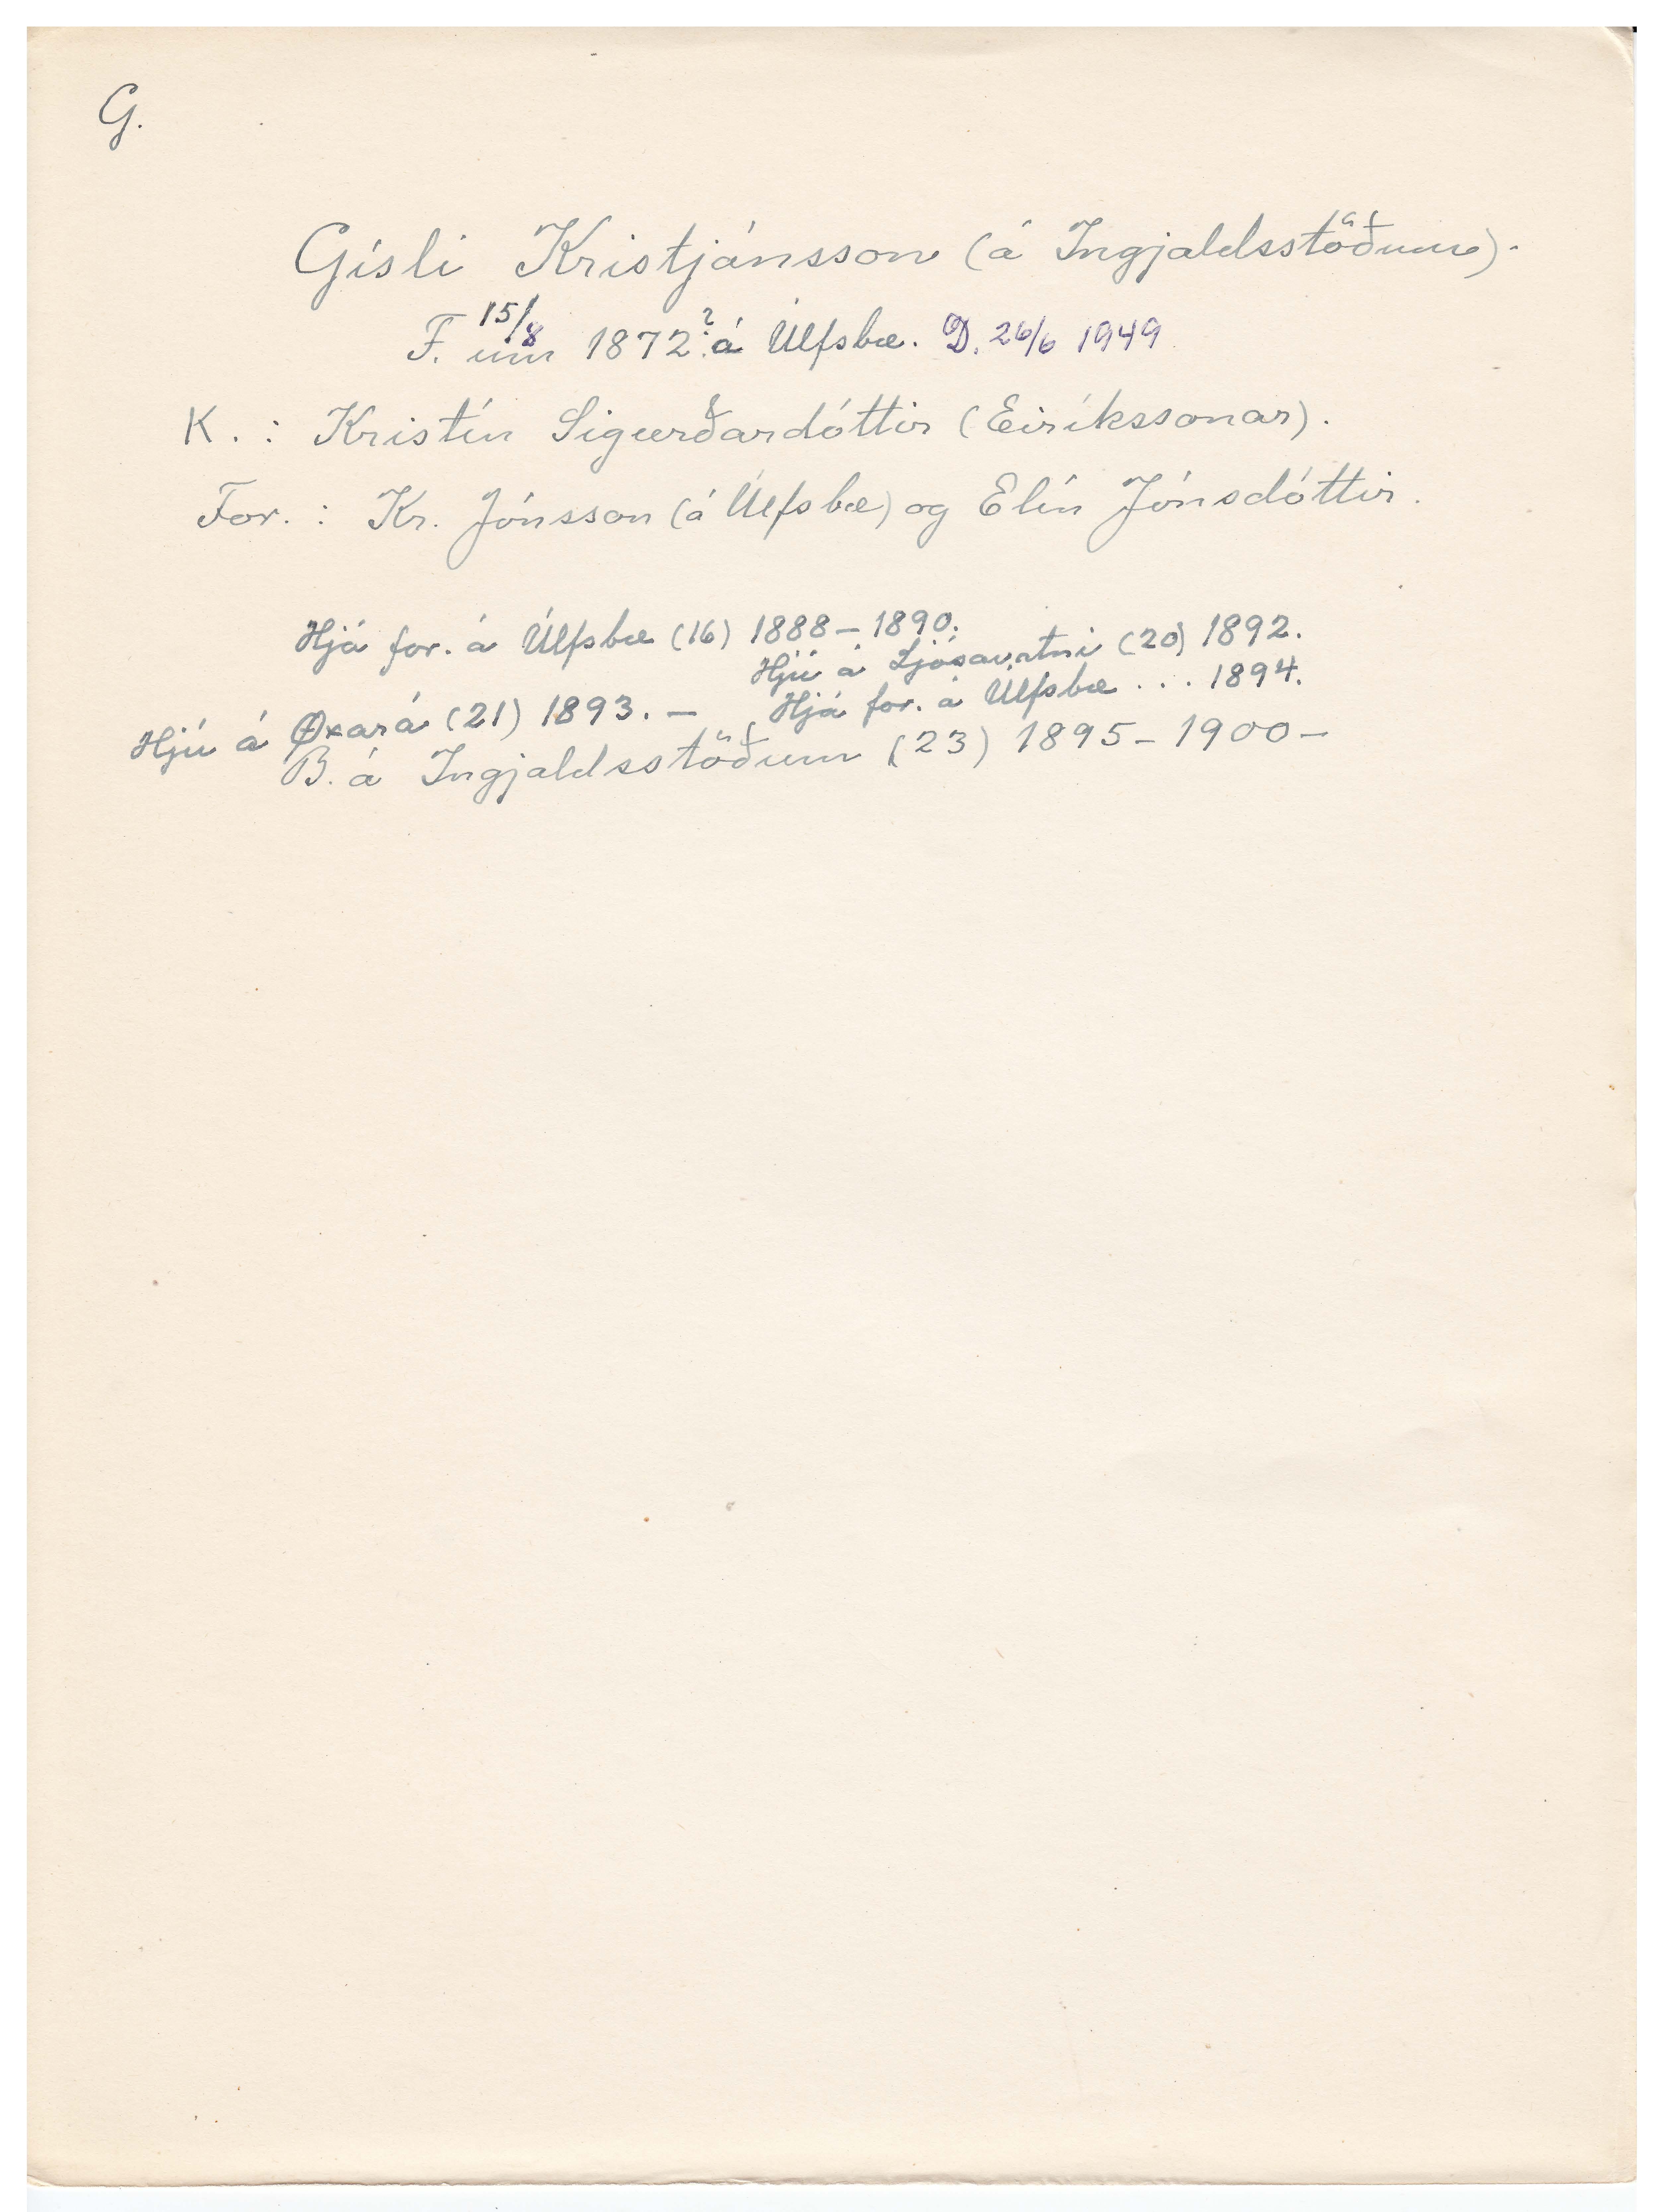 G.
Gísli Kristjánsson (á Ingjaldsstöðum).
F. um 15/8 1872? á Úlfsbæ. D. 26/6 1949
K. : Kristín Sigurðardóttir (Eiríkssonar).
For. : Kr. Jónsson (á Úlfsbæ) og Elín Jónsdóttir.
Hjá for. á Úlfsbæ (16) 1888–1890.
Hjú á Ljósavatni (20) 1892.
Hjú á Øxará (21) 1893. – Hjá for. á Úlfsbæ . . . 1894.
B. á Ingjaldsstöðum (23) 1895–1900–